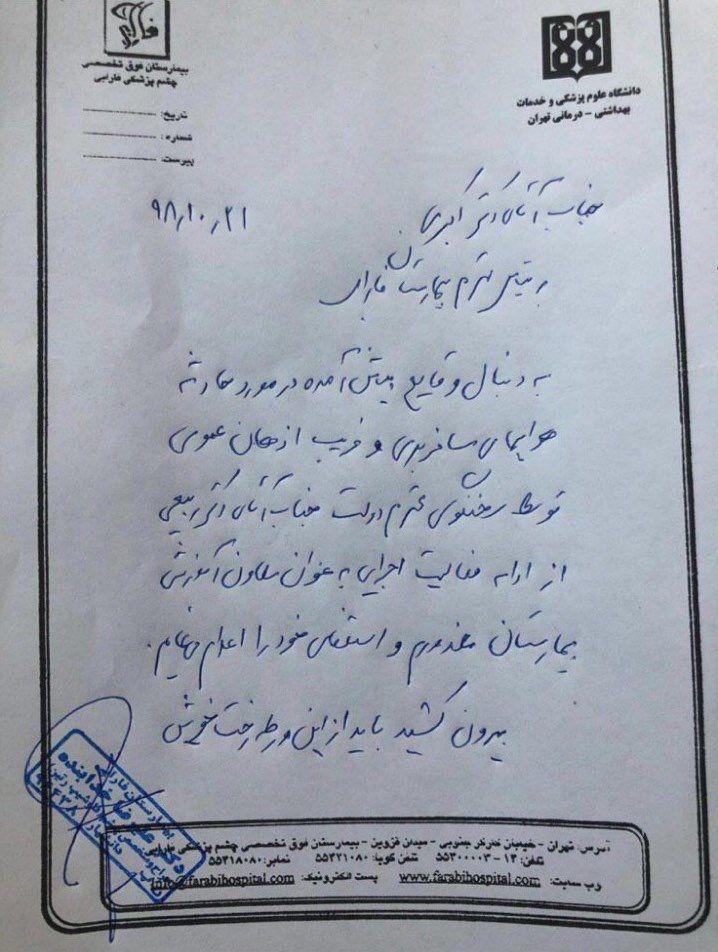 فارابی
بیمارستان فوق تخصصی
چشم پزشکی فارابی
تاریخ:
شماره:
پیوست:
دانشگاه علوم پزشکی و خدمات
بهداشتی - درمانی تهران
۹۸،۱۰،۲۱
جناب آقای دکتر اکبری
ریاست محترم بیمارستان فارابی
به دنبال وقایع پیش آمده در مورد حادثه
هواپیمای مسافربری و فریب اذهان عمومی
توسط سخنگوی محترم دولت جناب آقای دکتر ربیعی
از ادامه فعالیت اجرایی به عنوان معاون آموزشی
بیمارستان معذورم و استعفای خود را اعلام می‌نمایم.
بیرون کشید باید از این ورطه رخت خویش
بیمارستان فارابی
آدرس: تهران - خیابان کارگر جنوبی - میدان قزوین - بیمارستان فوق تخصصی چشم پزشکی فارابی
تلفن: ۱۴-۵۵۴۰۰۰۰۳ تلفن گویا: ۵۵۴۲۱۰۸۰ نمابر: ۵۵۴۱۸۰۸۰
وب سایت: www.farabihospital.com پست الکترونیک: info@farabihospital.com